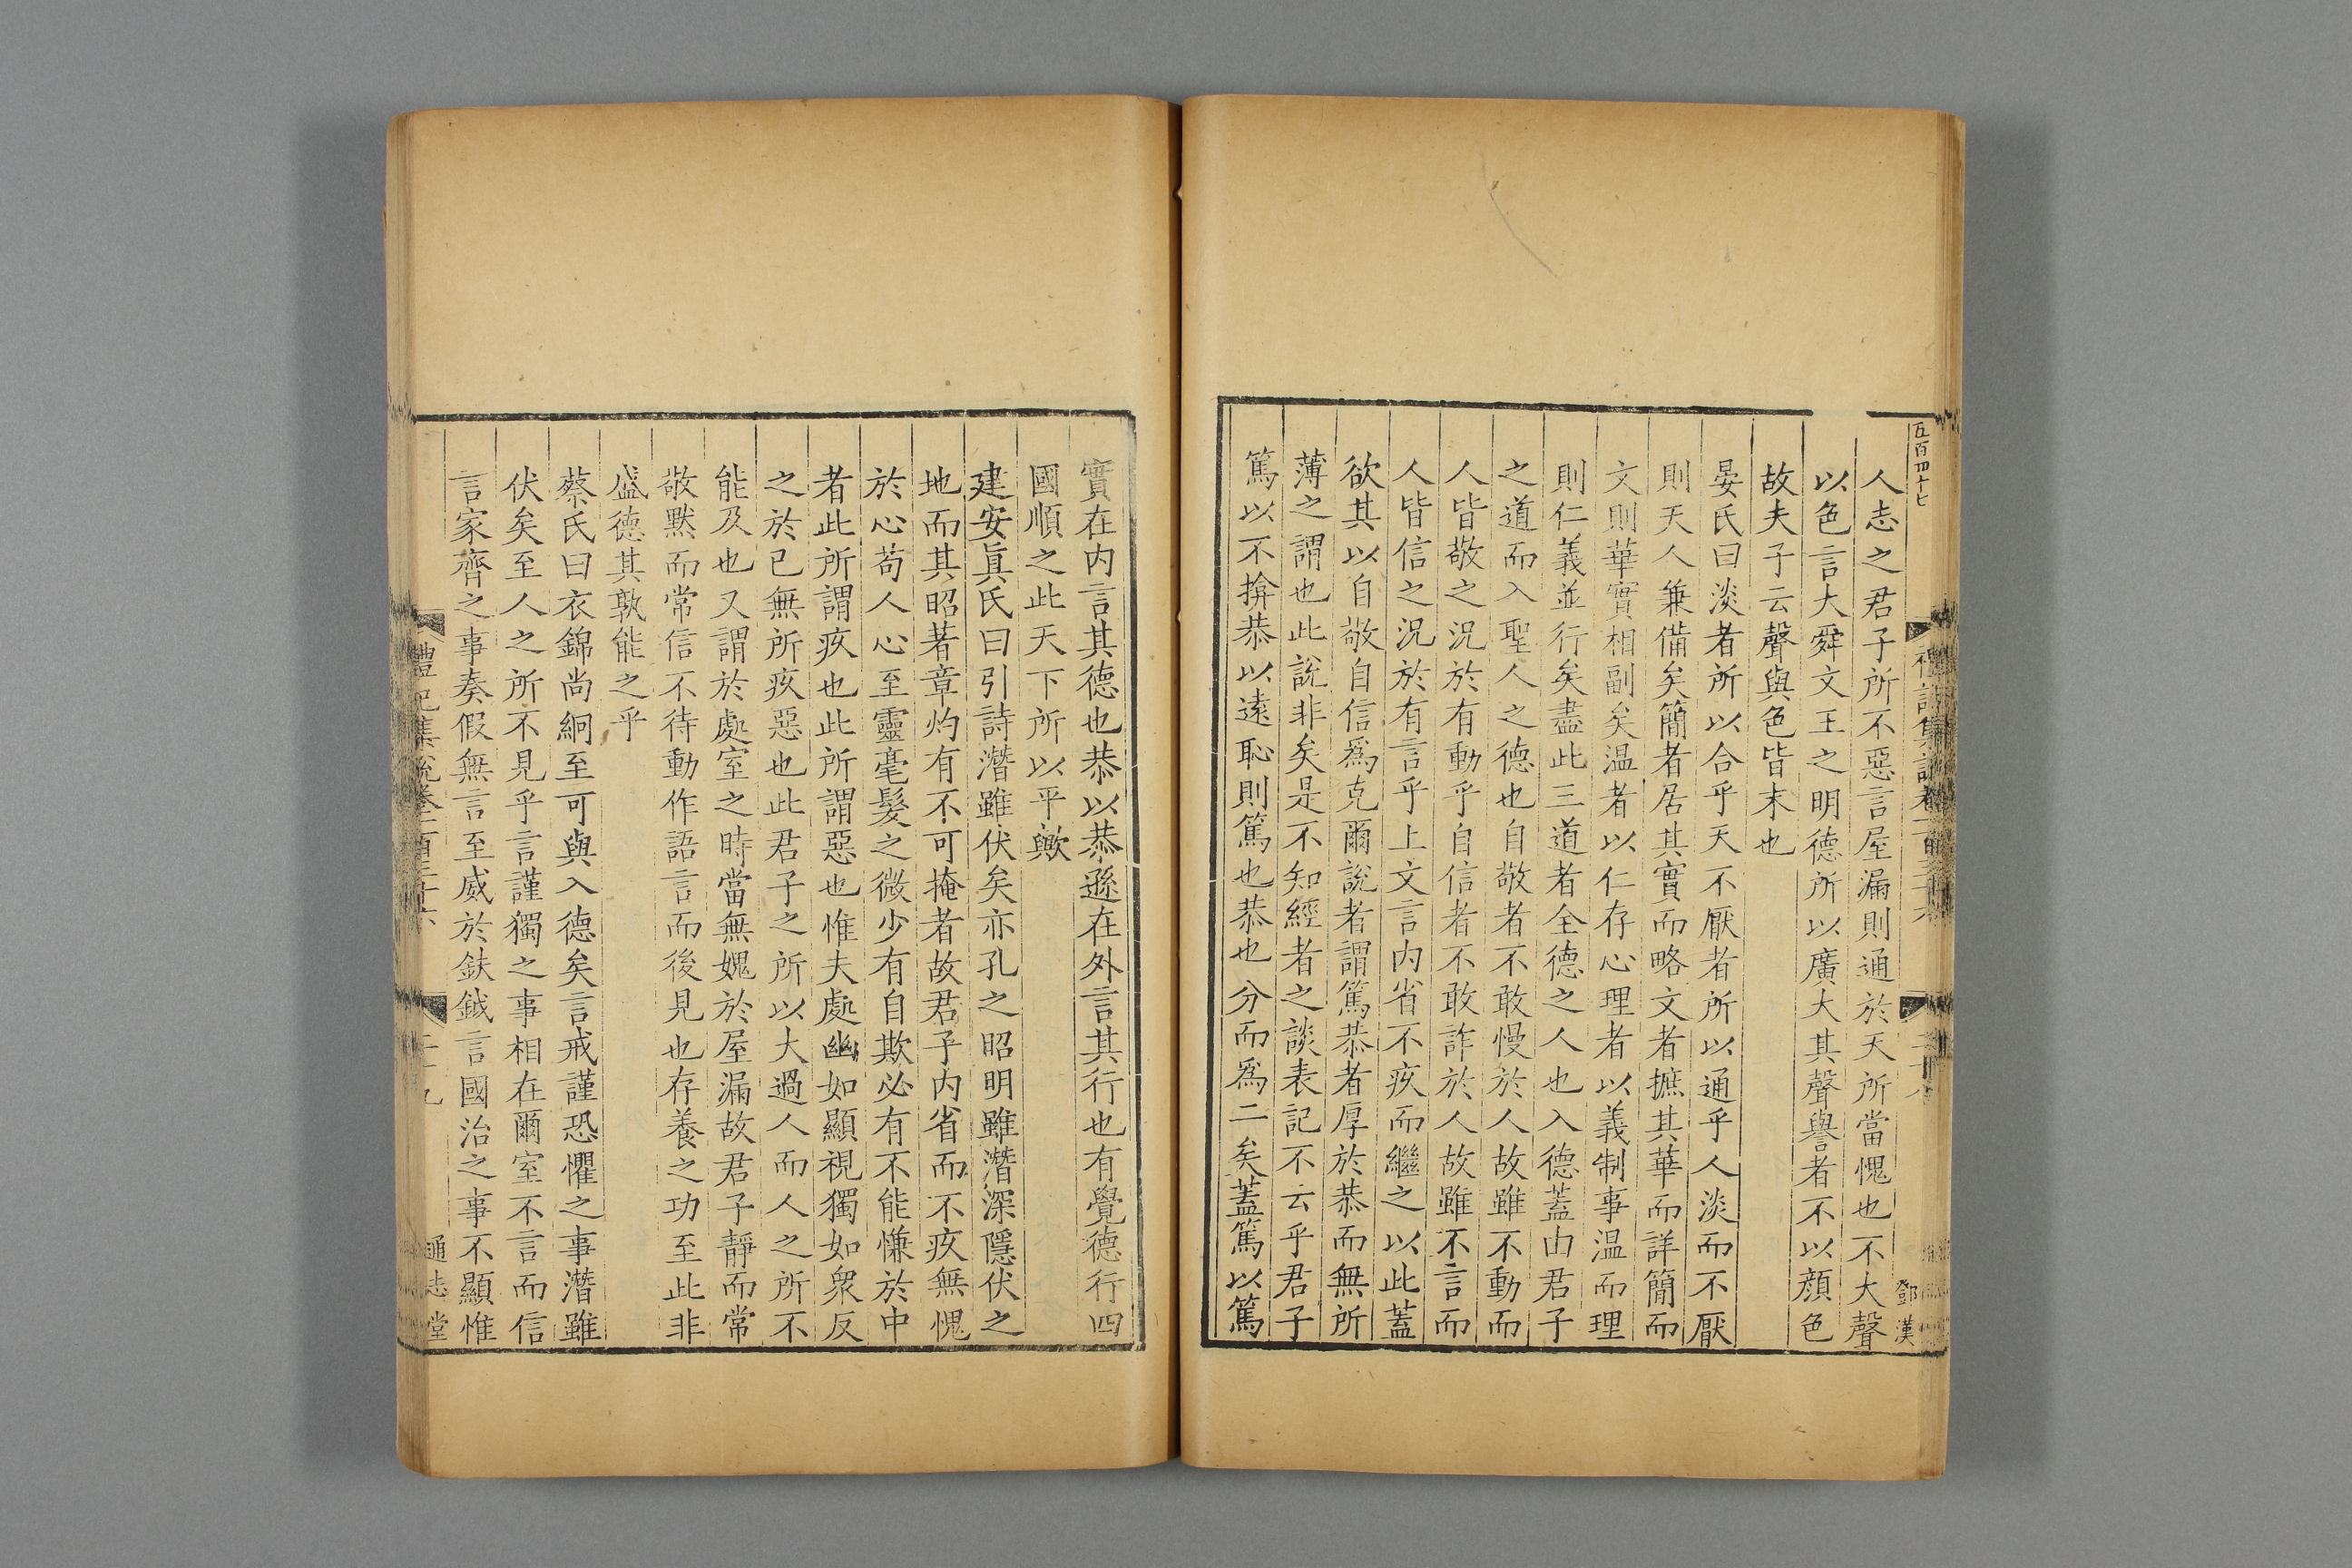 五百四十七
人志之君子所不惡言屋漏則通於天所當愧也不大聲
以色言大舜文王之明德所以廣大其聲譽者不以顔色
故夫子云聲與色皆末也
晏氏曰淡者所以合乎天不厭者所以通乎人淡而不厭
則天人兼備矣簡者居其實而略文者摭其華而詳簡而
文則華實相副矣温者以仁存心理者以義制事温而理
則仁義並行矣盡此三道者全德之人也入德蓋由君子
之道而入聖人之德也自敬者不敢慢於人故雖不動而
人皆敬之況於有動乎自信者不敢詐於人故雖不言而
人皆信之況於有言乎上文言内省不疚而繼之以此蓋
欲其以自敬自信爲克爾說者謂篤恭者厚於恭而無所
薄之謂也此說非矣是不知經者之談表記不云乎君子
篤以不揜恭以遠恥則篤也恭也分而爲二矣蓋篤以篤
鄧漢
實在内言其德也恭以恭遜在外言其行也有覺德行四
國順之此天下所以平歟
建安眞氏曰引詩潛雖伏矣亦孔之昭明雖潛深隱伏之
地而其昭著章灼有不可掩者故君子内省而不疚無愧
於心苟人心至靈毫髮之微少有自欺必有不能慊於中
者此所謂疚也此所謂惡也惟夫處幽如顯視獨如衆反
之於已無所疚惡也此君子之所以大過人而人之所不
能及也又謂於處室之時當無媿於屋漏故君子靜而常
敬黙而常信不待動作語言而後見也存養之功至此非
盛德其孰能之乎
蔡氏曰衣錦尚絅至可與入德矣言戒謹恐懼之事潛雖
伏矣至人之所不見乎言謹獨之事相在爾室不言而信
言家齊之事奏假無言至威於鈇鉞言國治之事不顯惟
禮記集說卷一百三十六
二十九
通志堂